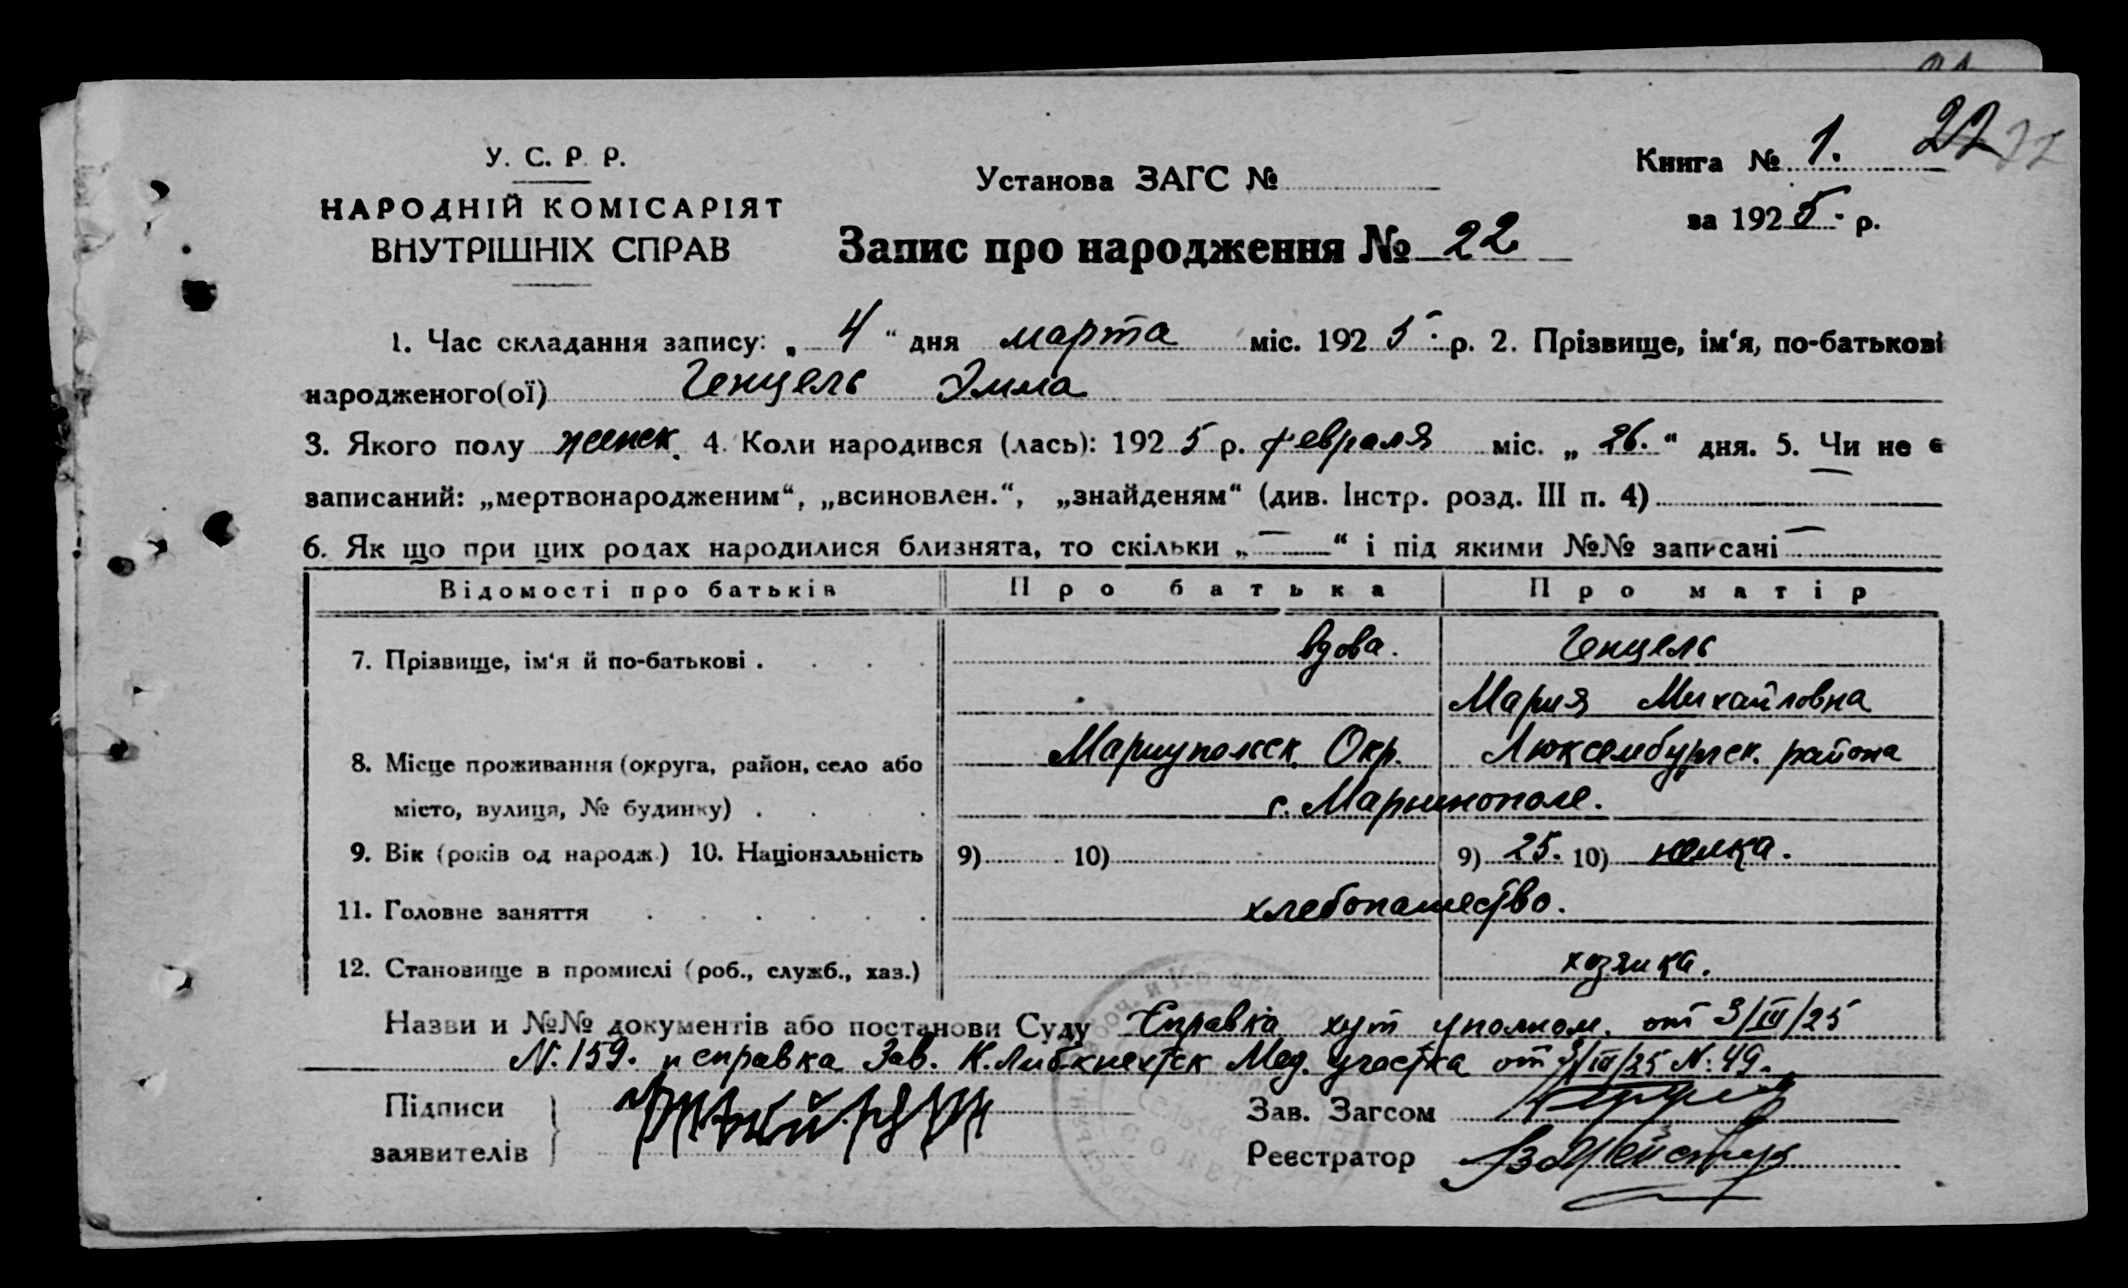 22
У. С. Р. Р.
НАРОДНІЙ КОМІСАРІЯТ
ВНУТРІШНІХ СПРАВ
Установа ЗАГС №
Запис про народження № 22
Книга № 1.
за 1925 р.
1. Час складання запису: „ 4 “ дня марта міс. 1925 р. 2. Прізвище, ім‘я, по-батькові
народженого(ої) Генцель Эмма
3. Якого полу женск. 4. Коли народився (лась): 1925 р. февраля міс. „ 26. “ дня. 5. Чи не є
записаний: „мертвонародженим“, „всиновлен.“, „знайденям“ (див. Інстр. розд. III п. 4) —
6. Як що при цих родах народилися близнята, то скільки „ — “ і під якими №№ записані —
Відомості про батьків Про батька Про матір
7. Прізвище, ім‘я й по-батькові . вдова. Генцель
Мария Михайловна
8. Місце проживання (округа, район, село або Мариупольск. Окр. Люксембургск. района
місто, вулиця, № будинку) . с. Марьинополе.
9. Вік (років од народж.) 10. Національність 9) 10) 9) 25. 10) немка.
11. Головне заняття хлебопашество.
12. Становище в промислі (роб., служб., хаз.) хозяйка.
Назви и №№ документів або постанови Суду Справка хут уполном. от 3/III/25
N. 159. и справка Зав. К. Либкнехтск Мед. участка от 3/III/25 N. 49.
Підписи
заявителів
Зав. Загсом
Реєстратор